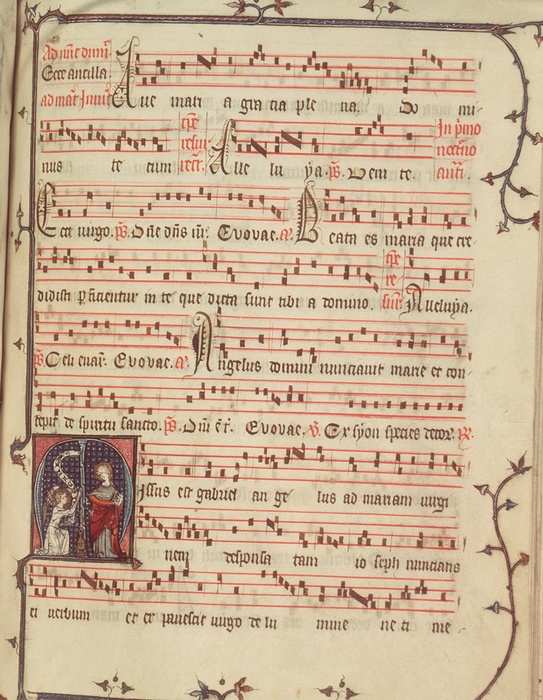 Ad nunc dimit
Ecce ancilla.
ad mat Invit Aue mari a gra cia ple na. Do mi
nus te cum Alle lu ya. ps. Veni te. In p'mo nocturno anti.
Ecce uirgo. ps. Dñe dñs. Euouae. a. Beata es maria que cre
didisti perficientur in te que dicta sunt tibi a domino. Alleluya.
ps. Celi enarr. Euouae. a. Angelus domini nunciauit marie et con
cepit de spiritu sancto. ps. Euouae. V. Ex syon species decor. R.
Missus est gabriel an ge lus ad mariam uirgi
nem despon sa tam io seph nuncians
ei uerbum et ex pauescit uirgo de lu mine ne ti me